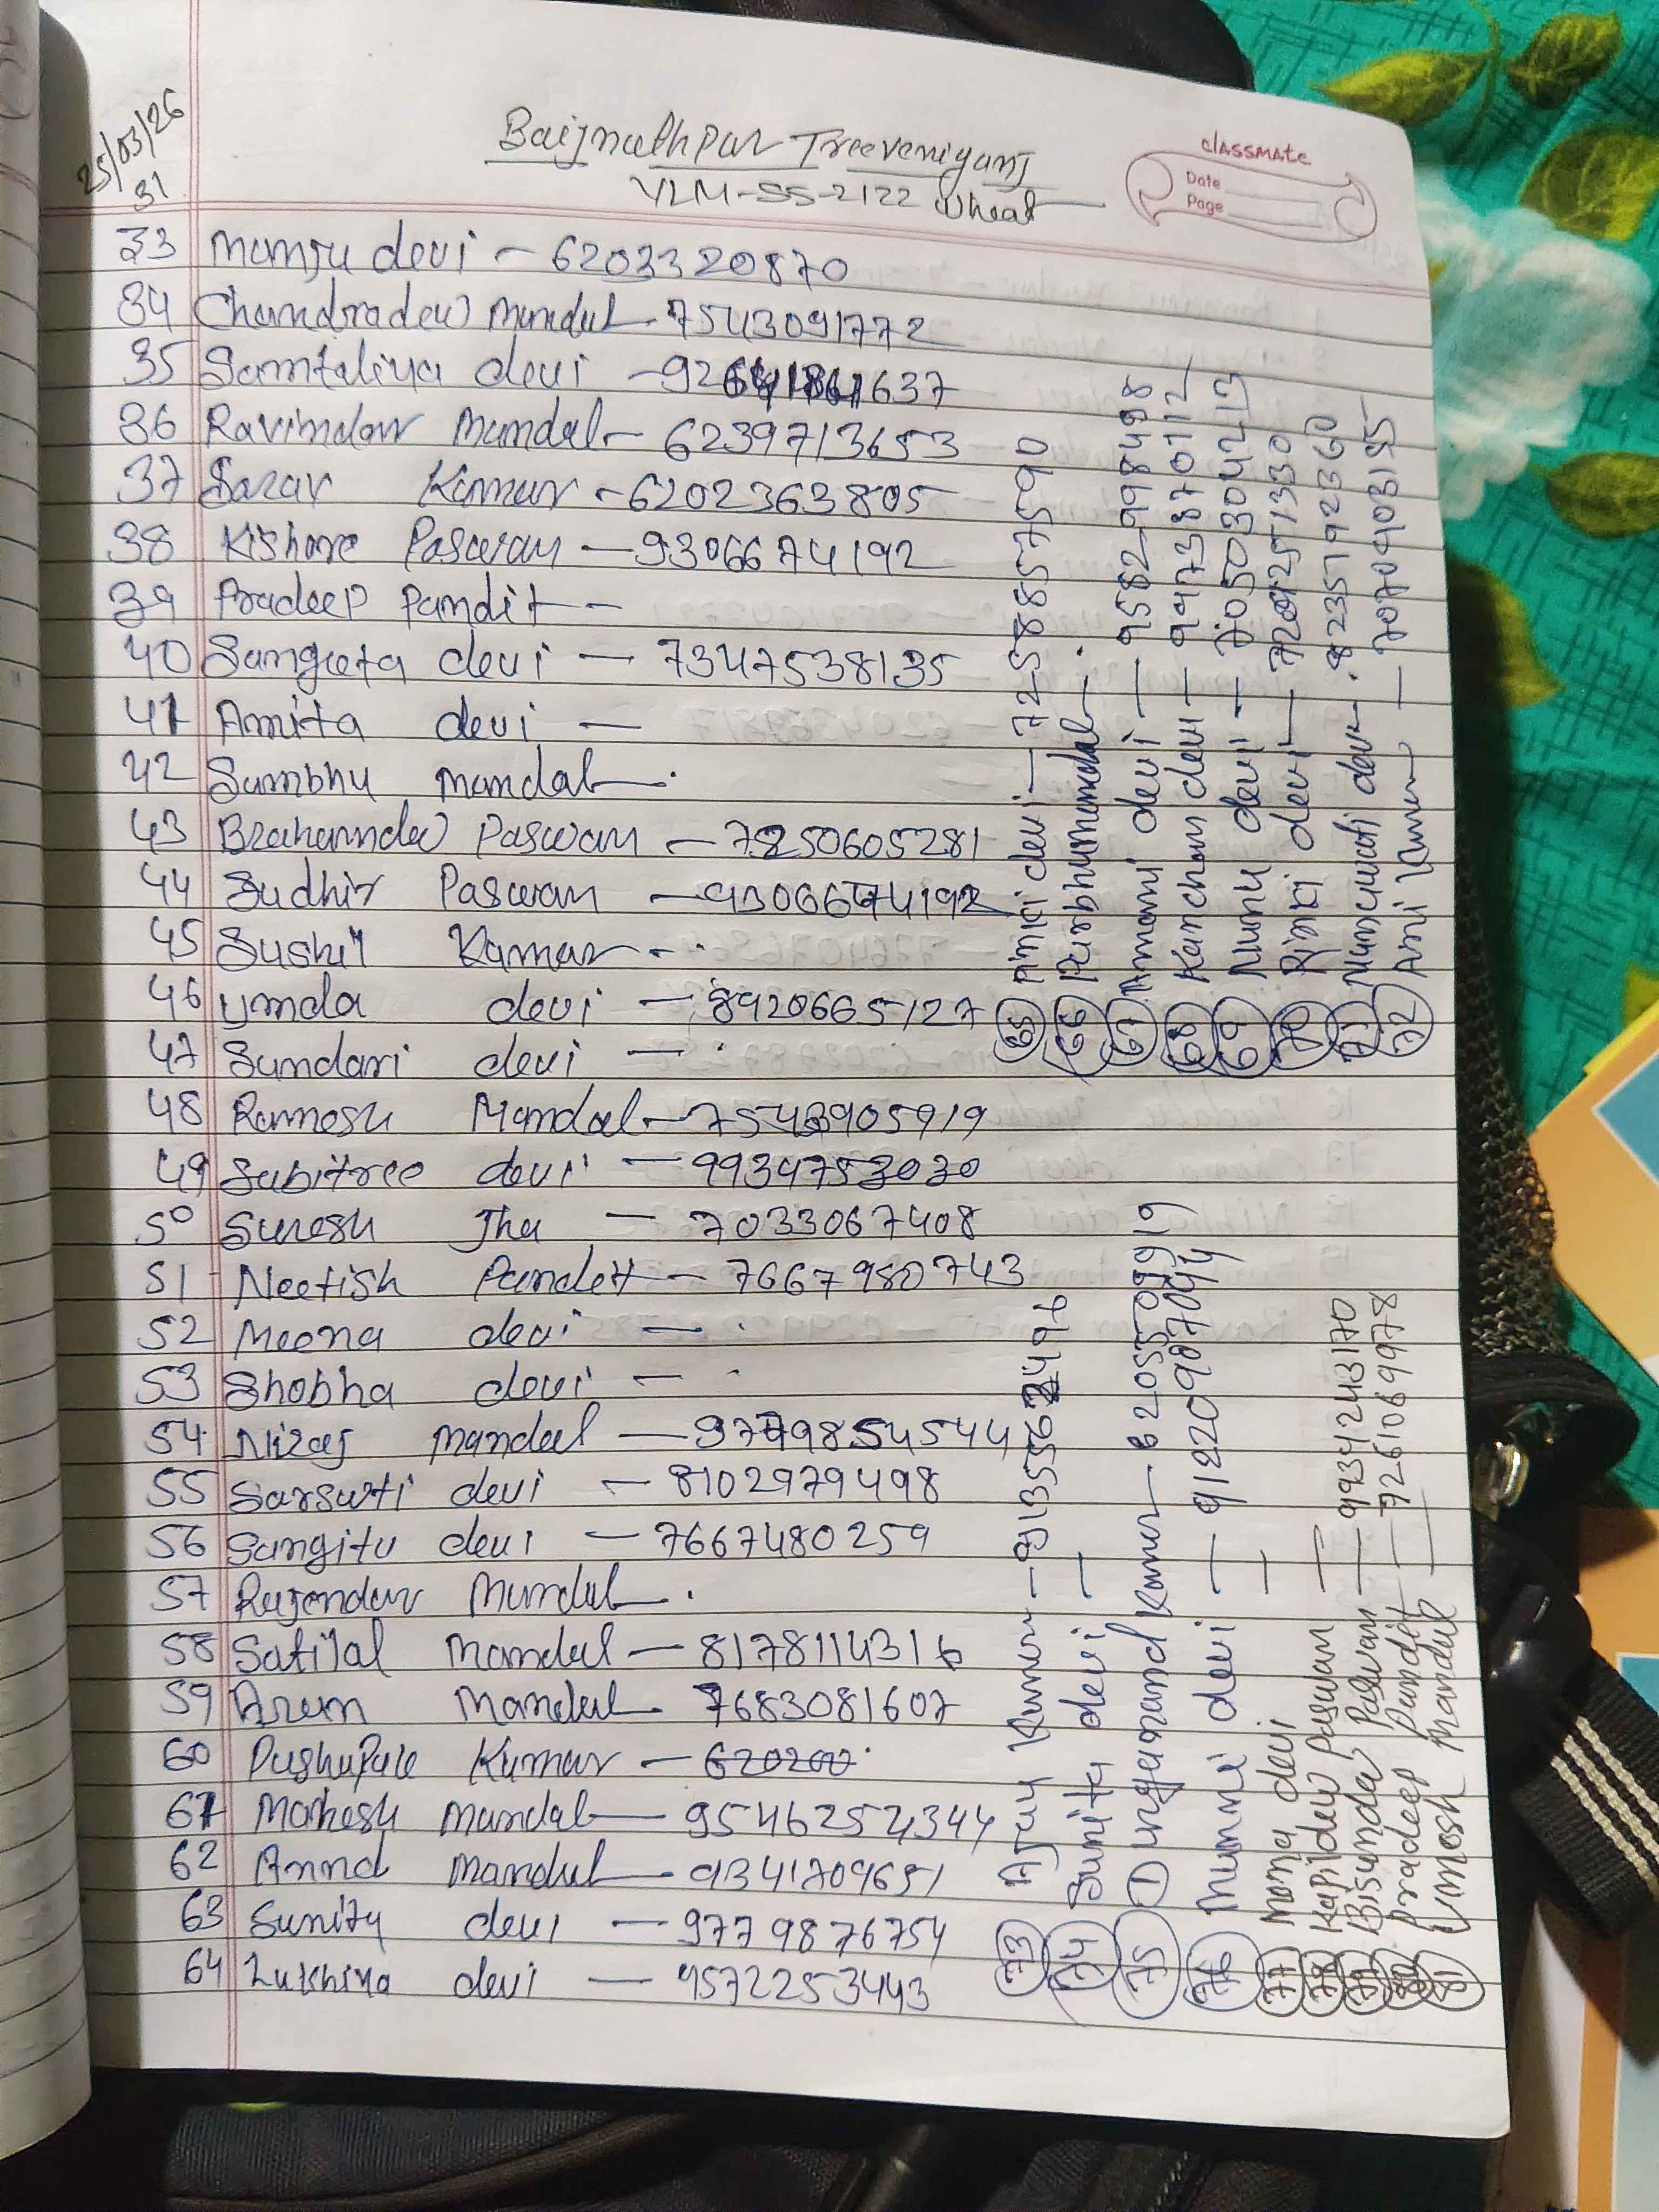 25/03/26
31
Baijnathpur Treeveniganj
VLM-SS-2122 Wheat
classmate
Date
Page
33 Manju devi - 6203320870
34 Chandradew Mandal - 7543091772
35 Samtaliya devi - 1637
36 Ravindar Mandal - 6239713653
37 Sazar Kumar - 6202363805
38 Kishore Paswan - 9306674192
39 Pradeep Pandit -
40 Sangeeta devi - 7347538135
41 Amita devi -
42 Sambhu Mandal - .
43 Brahamdev Paswan - 7250605281
44 Sudhir Paswan - 9306674192
45 Sushil Kumar - .
46 Umda devi - 8920665127
47 Sundari devi - .
48 Ramesh Mandal - 7543905919
49 Sabitree devi - 9934753030
50 Suresh Jha - 7033067408
51 Neetish Pandit - 7667980743
52 Meena devi - .
53 Shobha devi - .
54 Niraj Mandal - 9779854544
55 Sarswti devi - 8102979498
56 Sangita devi - 7667480259
57 Rajendar Mandal - .
58 Satilal Mandal - 8178114316
59 Arun Mandal - 7683081607
60 Kumar - 620200.
61 Mahesh Mandal - 9546252344
62 Annd Mandal - 9341709651
63 Sunita devi - 9779876754
64 Lukhiya devi - 9572253443
65 Rinki devi - 7258857590
66 Parbhu mandal - .
67 Annani devi - 9582998498
68 Kanchan devi - 9973870112
69 Nunu devi - 7050304213
70 Rinki devi - 1330
71 devi - 8235192360
72 Ani Kumar - 7070903185
73 Ajay Kumar - 4496
74 Sunita devi -
75 Kumar - 6205509919
76 Munni devi - 9122098704
77 Mona devi -
78 Kapildev Paswan -
79 Bisundev Paswan - 9934243170
80 Pradeep Pandit - 7261069978
81 Umesh Mandal -